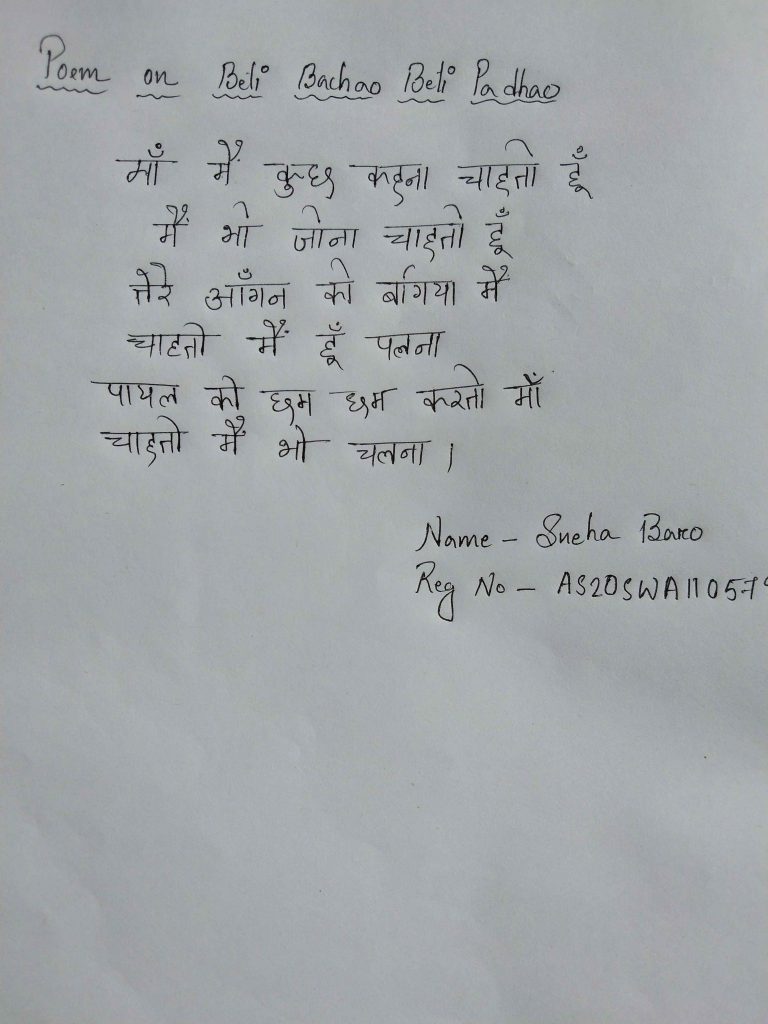 Poem on Beti Bachao Beti Padhao
माँ मैं कुछ कहना चाहती हूँ
मैं भी जीना चाहती हूँ
तेरे आँगन की बगिया मैं
चाहती मैं हूँ पलना
पायल की छम छम करती माँ
चाहती मैं भी चलना।
Name - Sneha Baro
Reg No - AS20SWA110579